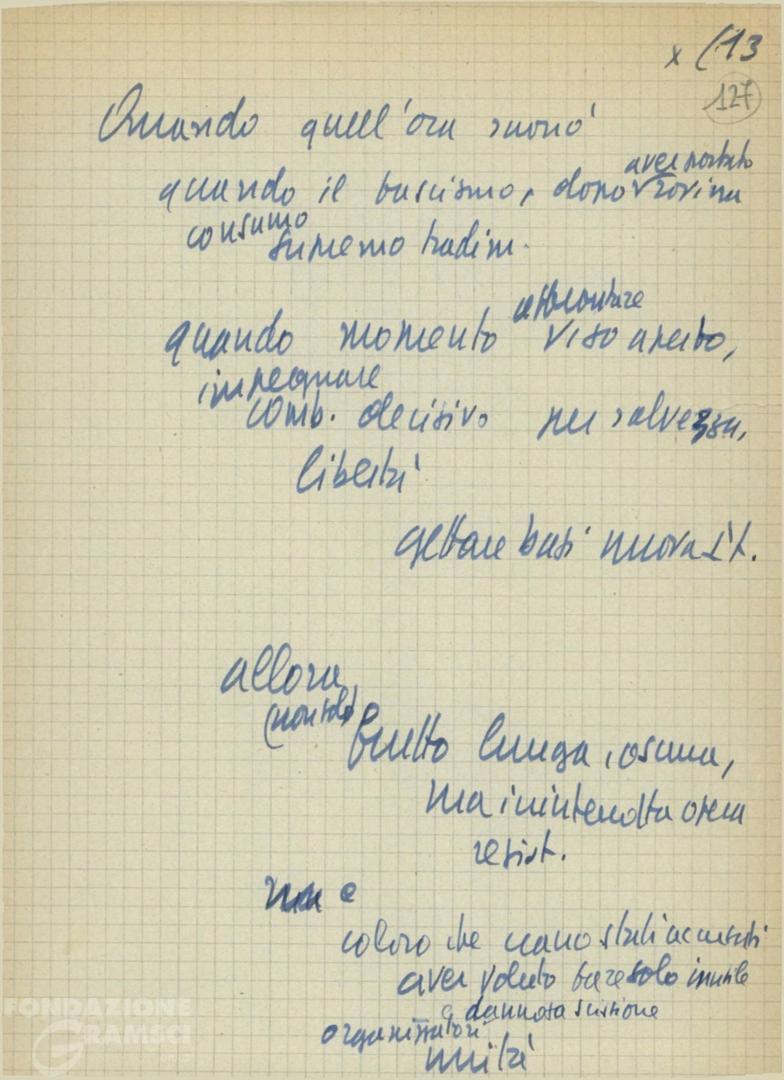 x (13
127
Quando quell'ora suonò
aver portato
quando il fascismo, dopo rovina
consumo
supremo tradim.
affrontare
quando momento viso aperto,
impegnare
comb. decisivo per salvezza,
libertà
gettare basi nuova It.
allora
(non solo)
frutto lunga, oscura,
ma ininterrotta opera
resist.
ma e
coloro che erano stati accusati
aver voluto fare solo inutile
e dannosa scissione
organizzatori
unità
FONDAZIONE
GRAMSCI